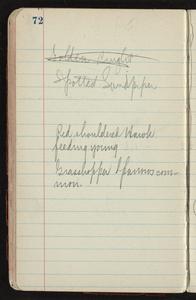 72
Golden
Spotted Sandpiper
Red shouldered Hawk
feeding young
Grasshopper Sparrows com-
mon.